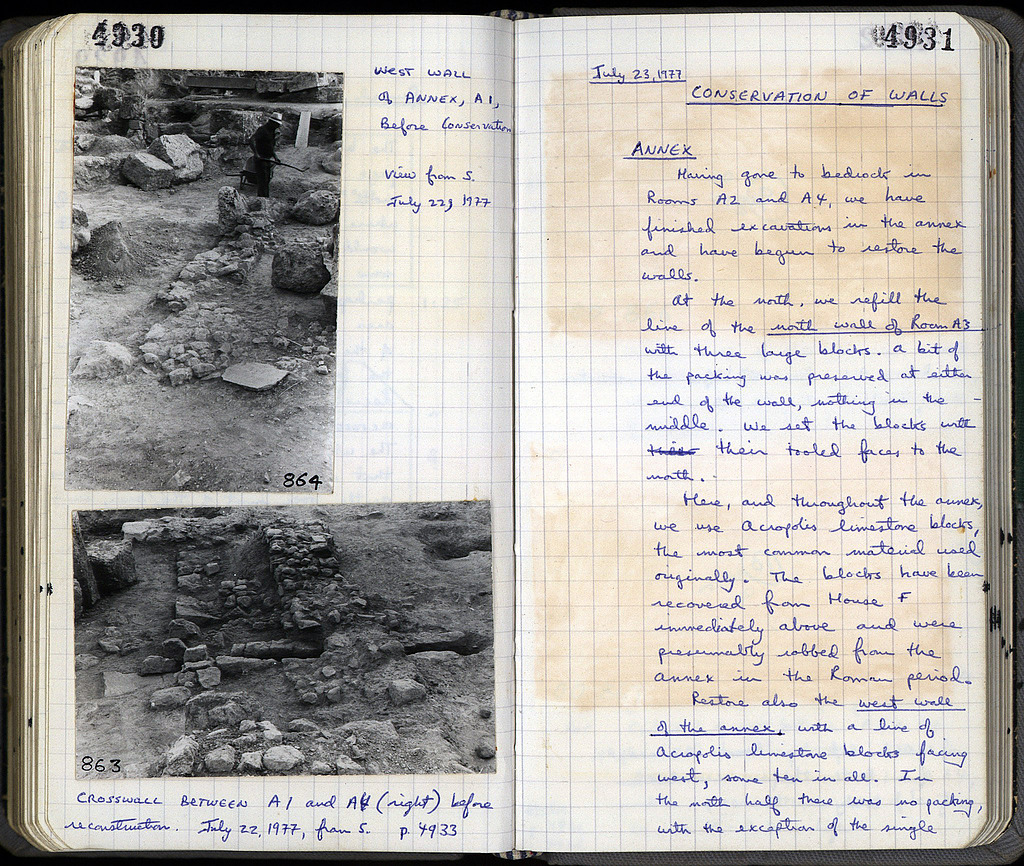 4930
WEST WALL
of ANNEX, A1,
Before Conservation
View from S.
July 22, 1977
864
863
CROSSWALL BETWEEN A1 and A4 (right) before
reconstruction. July 22, 1977, from S. p. 4933
4931
July 23, 1977
CONSERVATION OF WALLS
ANNEX
Having gone to bedrock in
Rooms A2 and A4, we have
finished excavations in the annex
and have begun to restore the
walls.
At the north, we refill the
line of the north wall of Room A3
with three large blocks. A bit of
the packing was preserved at either
end of the wall, nothing in the
middle. We set the blocks with
their tooled faces to the
north.
Here, and throughout the annex,
we use Acropolis limestone blocks,
the most common material used
originally. The blocks have been
recovered from House F
immediately above and were
presumably robbed from the
annex in the Roman period.
Restore also the west wall
of the annex, with a line of
Acropolis limestone blocks facing
west, some ten in all. In
the north half there was no packing,
with the exception of the single